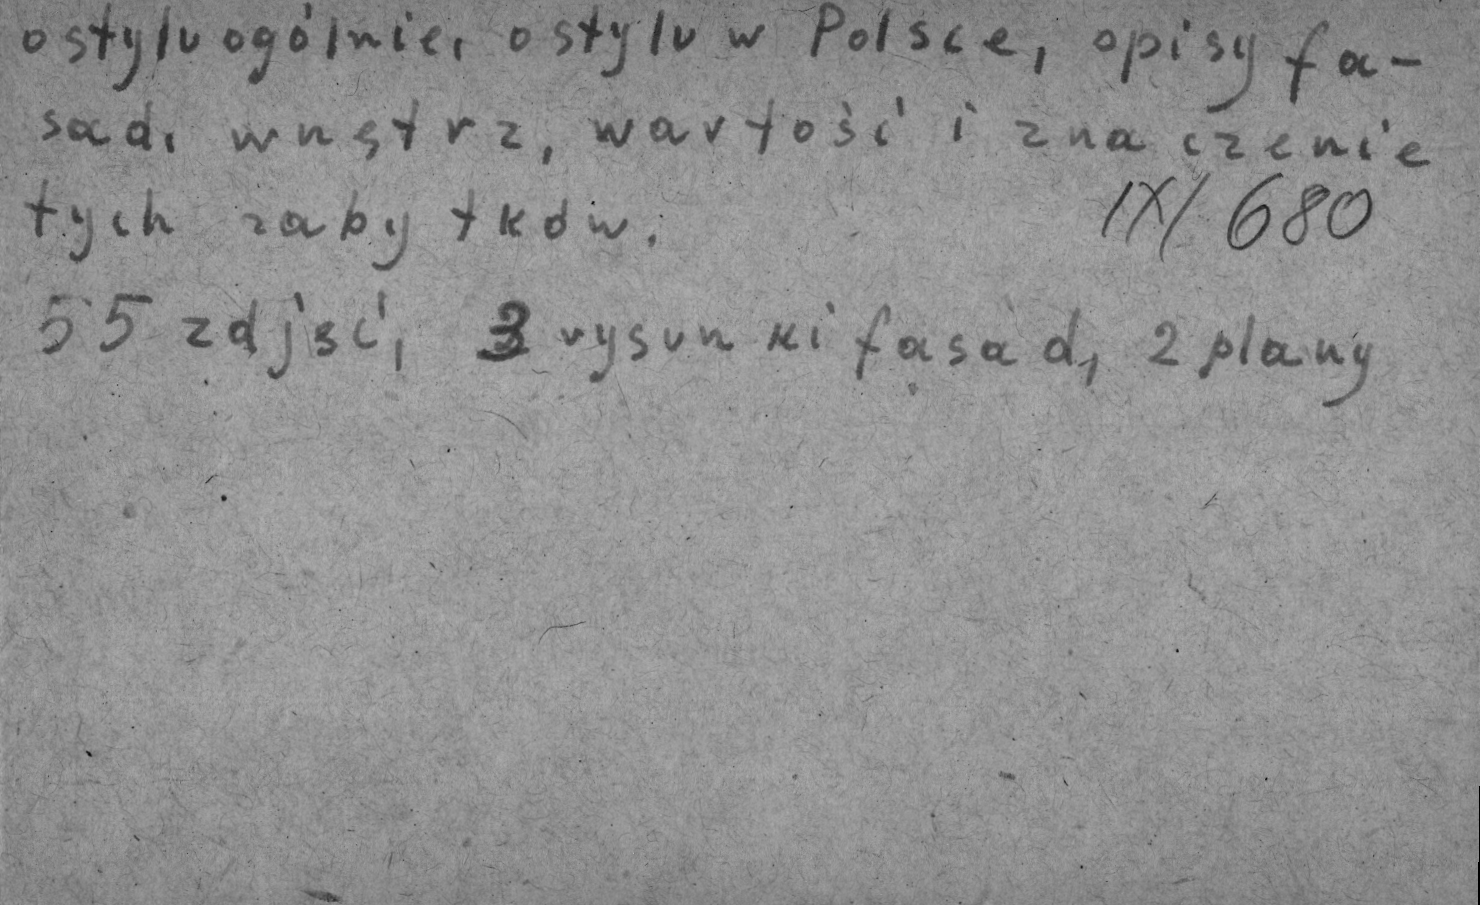 o stylu ogólnie, o stylu w Polsce, opisy fa-
sad, wnętrz, wartość i znaczenie
tych zabytków.
IX/680
55 zdjęć, 3 rysunki fasad, 2 plany